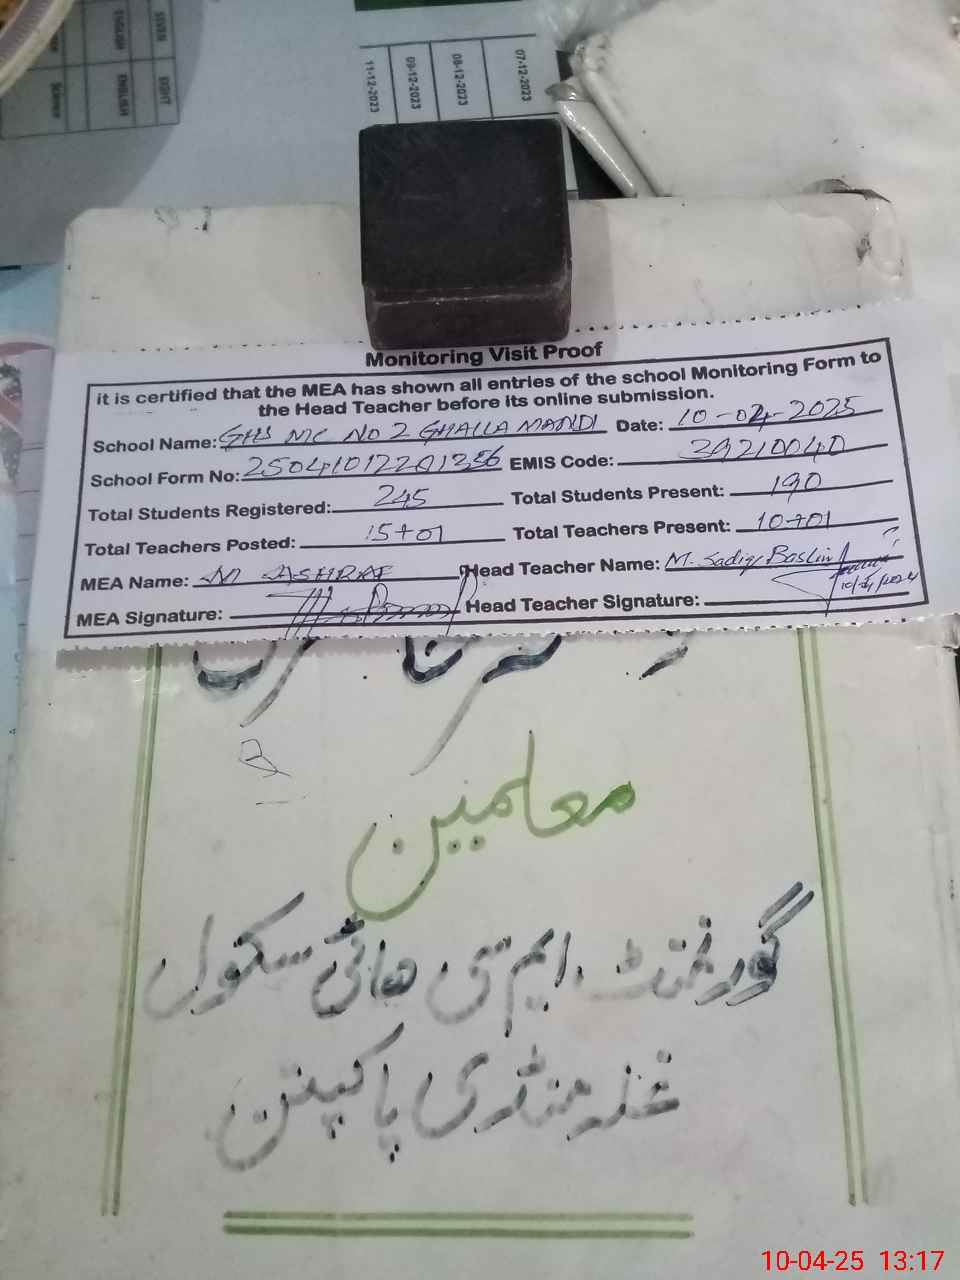 SEVEN EIGHT
ENGLISH ENGLISH
Science
07-12-2023
08-12-2023
09-12-2023
11-12-2023
Monitoring Visit Proof
it is certified that the MEA has shown all entries of the school Monitoring Form to
the Head Teacher before its online submission.
School Name: GHS MC NO 2 GHALLA MANDI Date: 10-04-2025
School Form No: EMIS Code: 39210040
Total Students Registered: 245 Total Students Present: 190
Total Teachers Posted: 15+01 Total Teachers Present: 10+01
MEA Name: M ASHRAF Head Teacher Name: M. Sadiq
MEA Signature: Head Teacher Signature:
معلمین
گورنمنٹ ایم سی ھائی سکول
غلہ منڈی پاکپتن
10-04-25 13:17